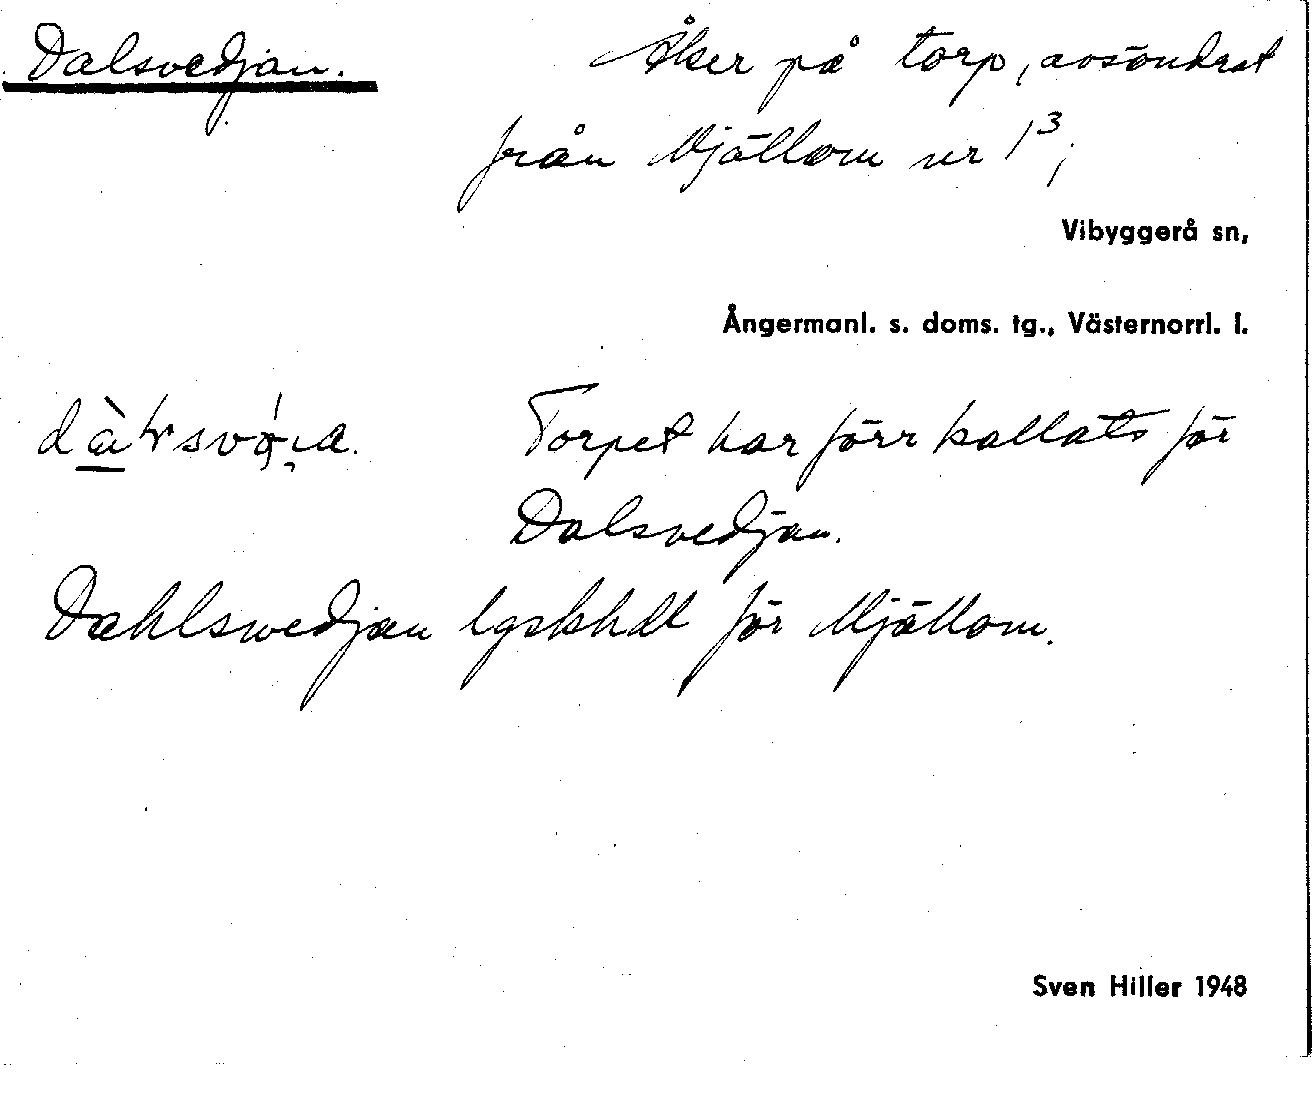 Dalsvedjan. Åker på torp, avsöndrat
från Mjällom nr 1³;
Vibyggerå sn,
Ångermanl. s. doms. tg., Västernorrl. l.
Torpet har förr kallats för
Dalsvedjan.
Dahlswedjan lgskhdl för Mjällom.
Sven Hiller 1948